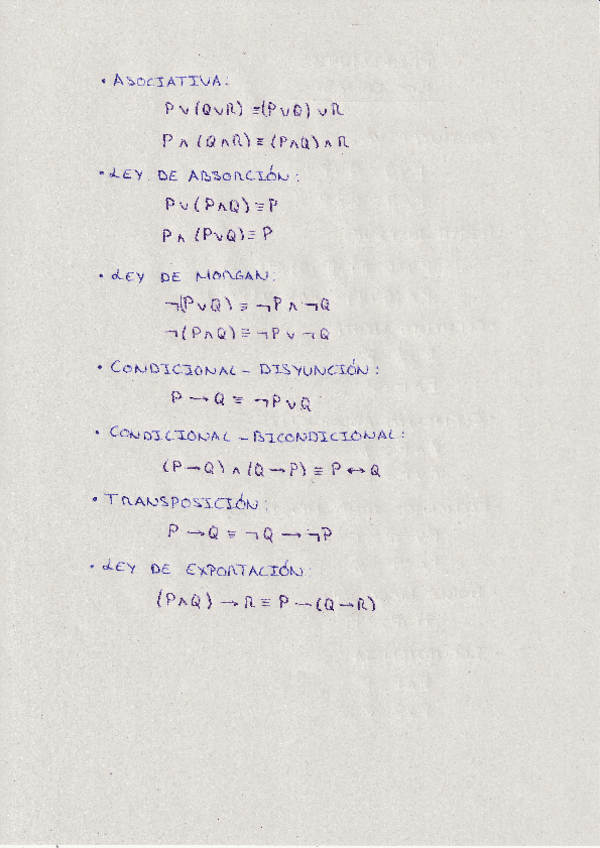 • ASOCIATIVA:
P∨(Q∨R) ≡(P∨Q)∨R
P∧(Q∧R)≡(P∧Q)∧R
• LEY DE ABSORCIÓN:
P∨(P∧Q)≡P
P∧(P∨Q)≡P
• LEY DE MORGAN:
¬(P∨Q) ≡ ¬P∧¬Q
¬(P∧Q)≡¬P∨¬Q
• CONDICIONAL - DISYUNCIÓN:
P→Q ≡ ¬P∨Q
• CONDICIONAL - BICONDICIONAL:
(P→Q)∧(Q→P) ≡ P↔Q
• TRANSPOSICIÓN:
P→Q ≡ ¬Q→¬P
• LEY DE EXPORTACIÓN:
(P∧Q)→R ≡ P→(Q→R)